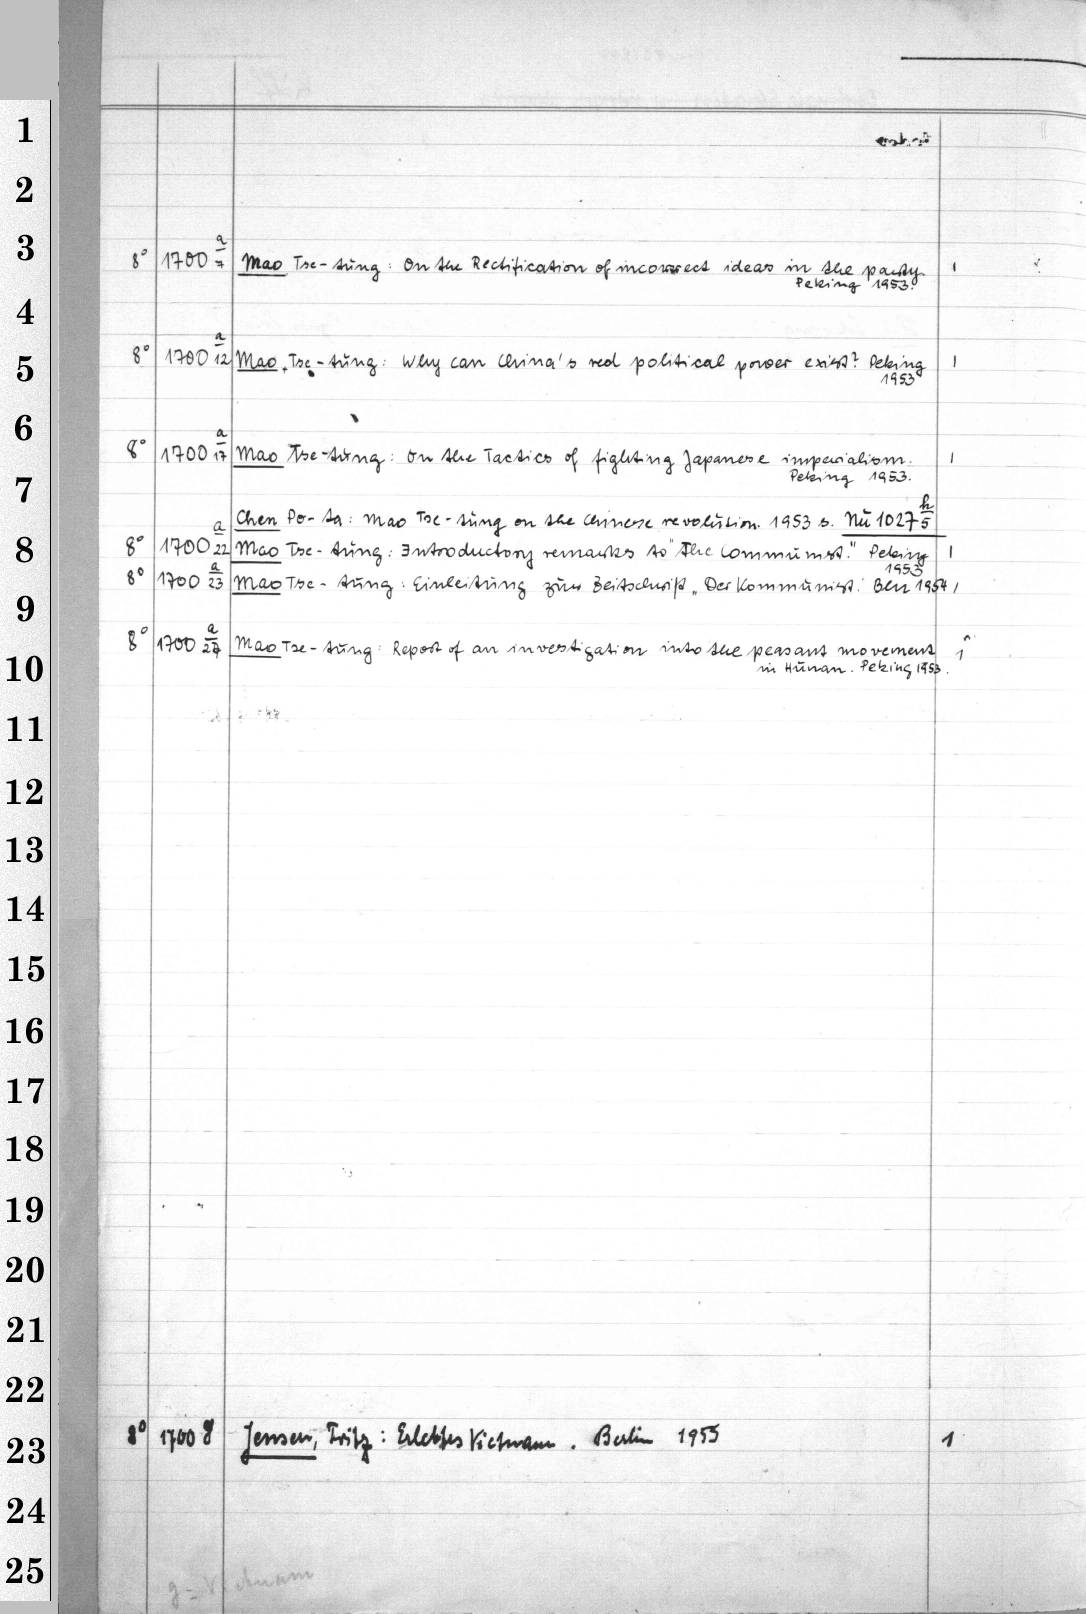 1
2
3
8° 1700 a/7 Mao Tse-tung: On the Rectification of incorrect ideas in the party 1
Peking 1953.
4
8° 1700 a/12 Mao Tse-tung: Why can China's red political power exist? Peking 1
5
1953
6
8° 1700 a/17 Mao Tse-tung: On the Tactics of fighting Japanese imperialism. 1
Peking 1953.
7
Chen Po-ta: Mao Tse-tung on the Chinese revolution. 1953 s. Nu 1027 h/5
8
8° 1700 a/22 Mao Tse-tung: Introductory remarks to "The Communist." Peking 1
1953
8° 1700 a/23 Mao Tse-tung: Einleitung zur Zeitschrift „Der Kommunist." Bln 1954 1
9
8° 1700 a/27 Mao Tse-tung: Report of an investigation into the peasant movement 1
in Hunan. Peking 1953.
10
11
12
13
14
15
16
17
18
19
20
21
22
8° 1700 g Jensen, Fritz: Erlebtes Vietnam. Berlin 1955 1
23
24
25
g = Vietnam